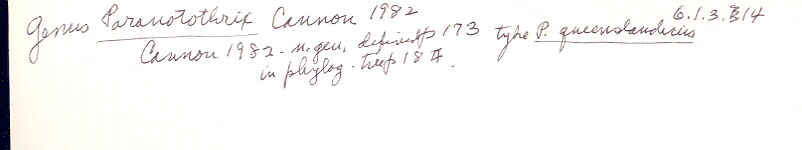 Genus Paranotothrix Cannon 1982 6.1.3.B14
Cannon 1982 - n. gen, defined p 173 type P. queenslandicus
in phylog. tree p 18 II.